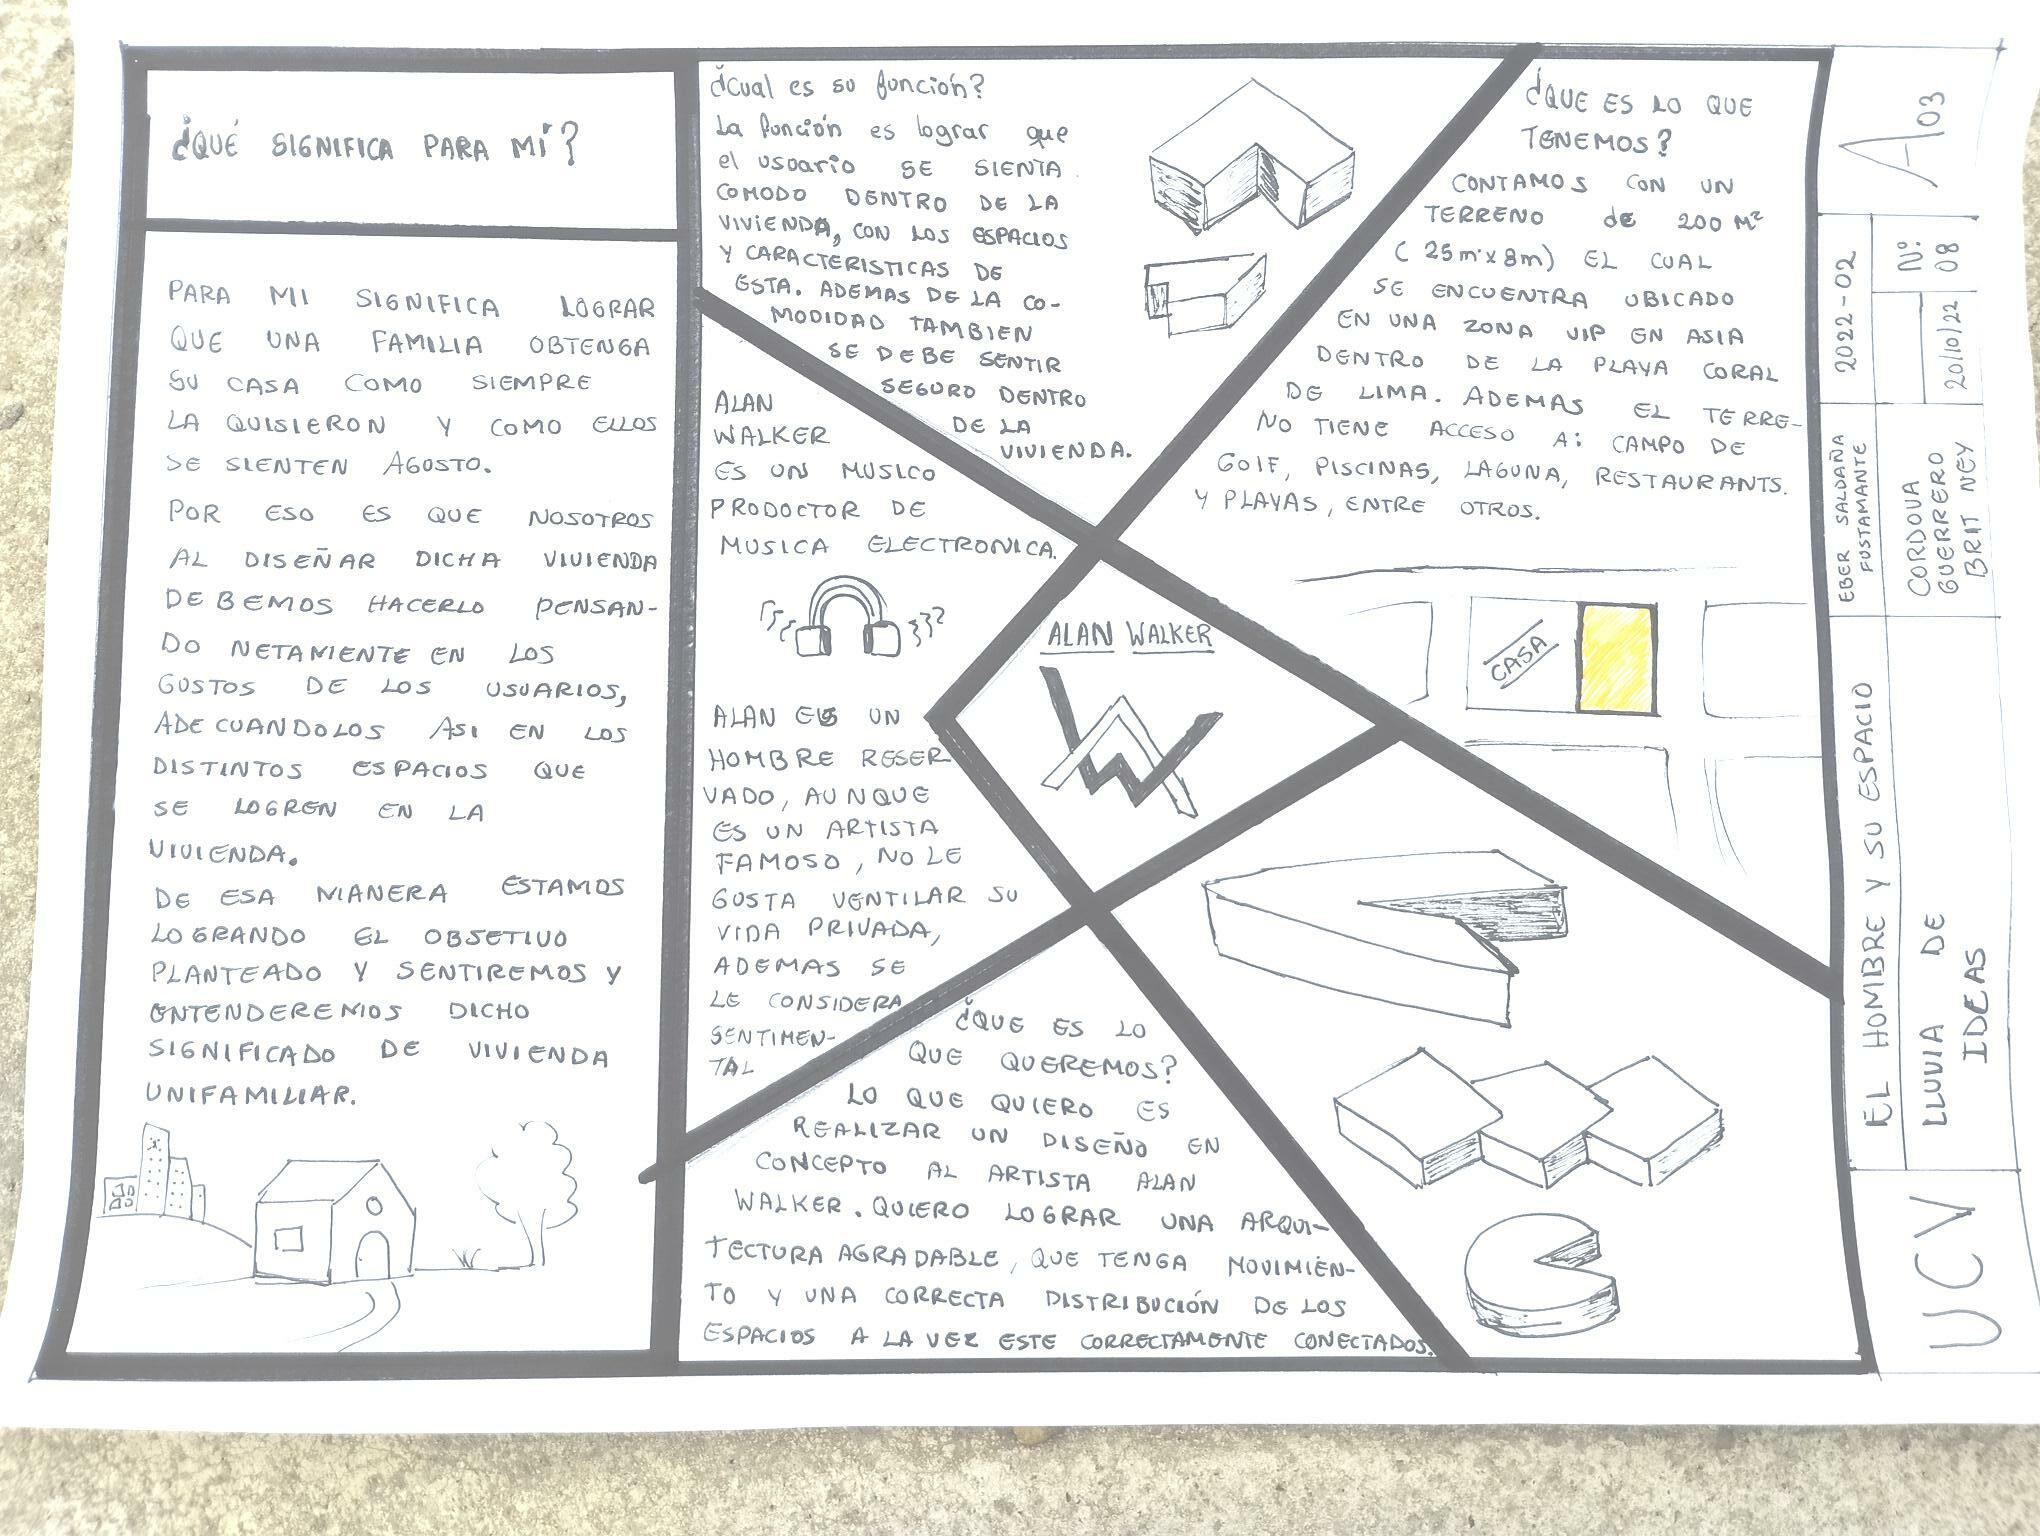 ¿QUÉ SIGNIFICA PARA MÍ?
PARA MI SIGNIFICA LOGRAR
QUE UNA FAMILIA OBTENGA
SU CASA COMO SIEMPRE
LA QUISIERON Y COMO ELLOS
SE SIENTEN AGOSTO.
POR ESO ES QUE NOSOTROS
AL DISEÑAR DICHA VIVIENDA
DEBEMOS HACERLO PENSAN-
DO NETAMENTE EN LOS
GUSTOS DE LOS USUARIOS,
ADECUANDOLOS ASI EN LOS
DISTINTOS ESPACIOS QUE
SE LOGREN EN LA
VIVIENDA.
DE ESA MANERA ESTAMOS
LOGRANDO EL OBJETIVO
PLANTEADO Y SENTIREMOS Y
ENTENDEREMOS DICHO
SIGNIFICADO DE VIVIENDA
UNIFAMILIAR.
¿Cual es su función?
La función es lograr que
el usuario SE SIENTA
COMODO DENTRO DE LA
VIVIENDA, CON LOS ESPACIOS
Y CARACTERISTICAS DE
ESTA. ADEMAS DE LA CO-
MODIDAD TAMBIEN
SE DEBE SENTIR
SEGURO DENTRO
DE LA
VIVIENDA.
ALAN
WALKER
ES UN MUSICO
PRODOCTOR DE
MUSICA ELECTRONICA.
ALAN ES UN
HOMBRE RESER
VADO, AUNQUE
ES UN ARTISTA
FAMOSO, NO LE
GUSTA VENTILAR SU
VIDA PRIVADA,
ADEMAS SE
LE CONSIDERA
SENTIMEN-
TAL
ALAN WALKER
¿QUE ES LO QUE
TENEMOS?
CONTAMOS CON UN
TERRENO de 200 M²
(25m x 8m) EL CUAL
SE ENCUENTRA UBICADO
EN UNA ZONA VIP EN ASIA
DENTRO DE LA PLAYA CORAL
DE LIMA. ADEMAS EL TERRE-
NO TIENE ACCESO A: CAMPO DE
GOLF, PISCINAS, LAGUNA, RESTAURANTS.
Y PLAYAS, ENTRE OTROS.
CASA
¿QUE ES LO
QUE QUEREMOS?
LO QUE QUIERO ES
REALIZAR UN DISEÑO EN
CONCEPTO AL ARTISTA ALAN
WALKER. QUIERO LOGRAR UNA ARQUI-
TECTURA AGRADABLE, QUE TENGA MOVIMIEN-
TO Y UNA CORRECTA DISTRIBUCIÓN DE LOS
ESPACIOS A LA VEZ ESTE CORRECTAMENTE CONECTADOS.
UCV
EL HOMBRE Y SU ESPACIO
LLUVIA DE
IDEAS
EBER SALDAÑA
FUSTAMANTE
CORDOVA
GUERRERO
BRITNEY
2022-02
20/10/22
Nº:
08
A03